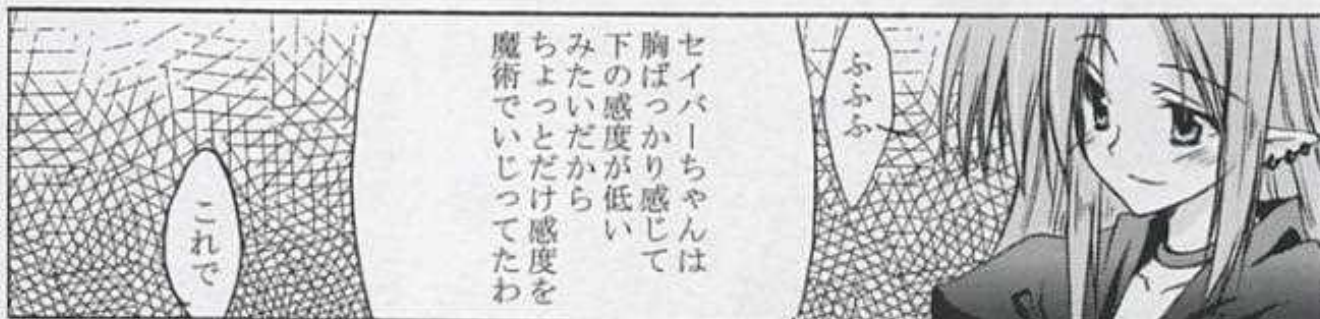 ふふふ
セイバーちゃんは
胸ばっかり感じて
下の感度が低い
みたいだから
ちょっとだけ感度を
魔術でいじってたわ
これで